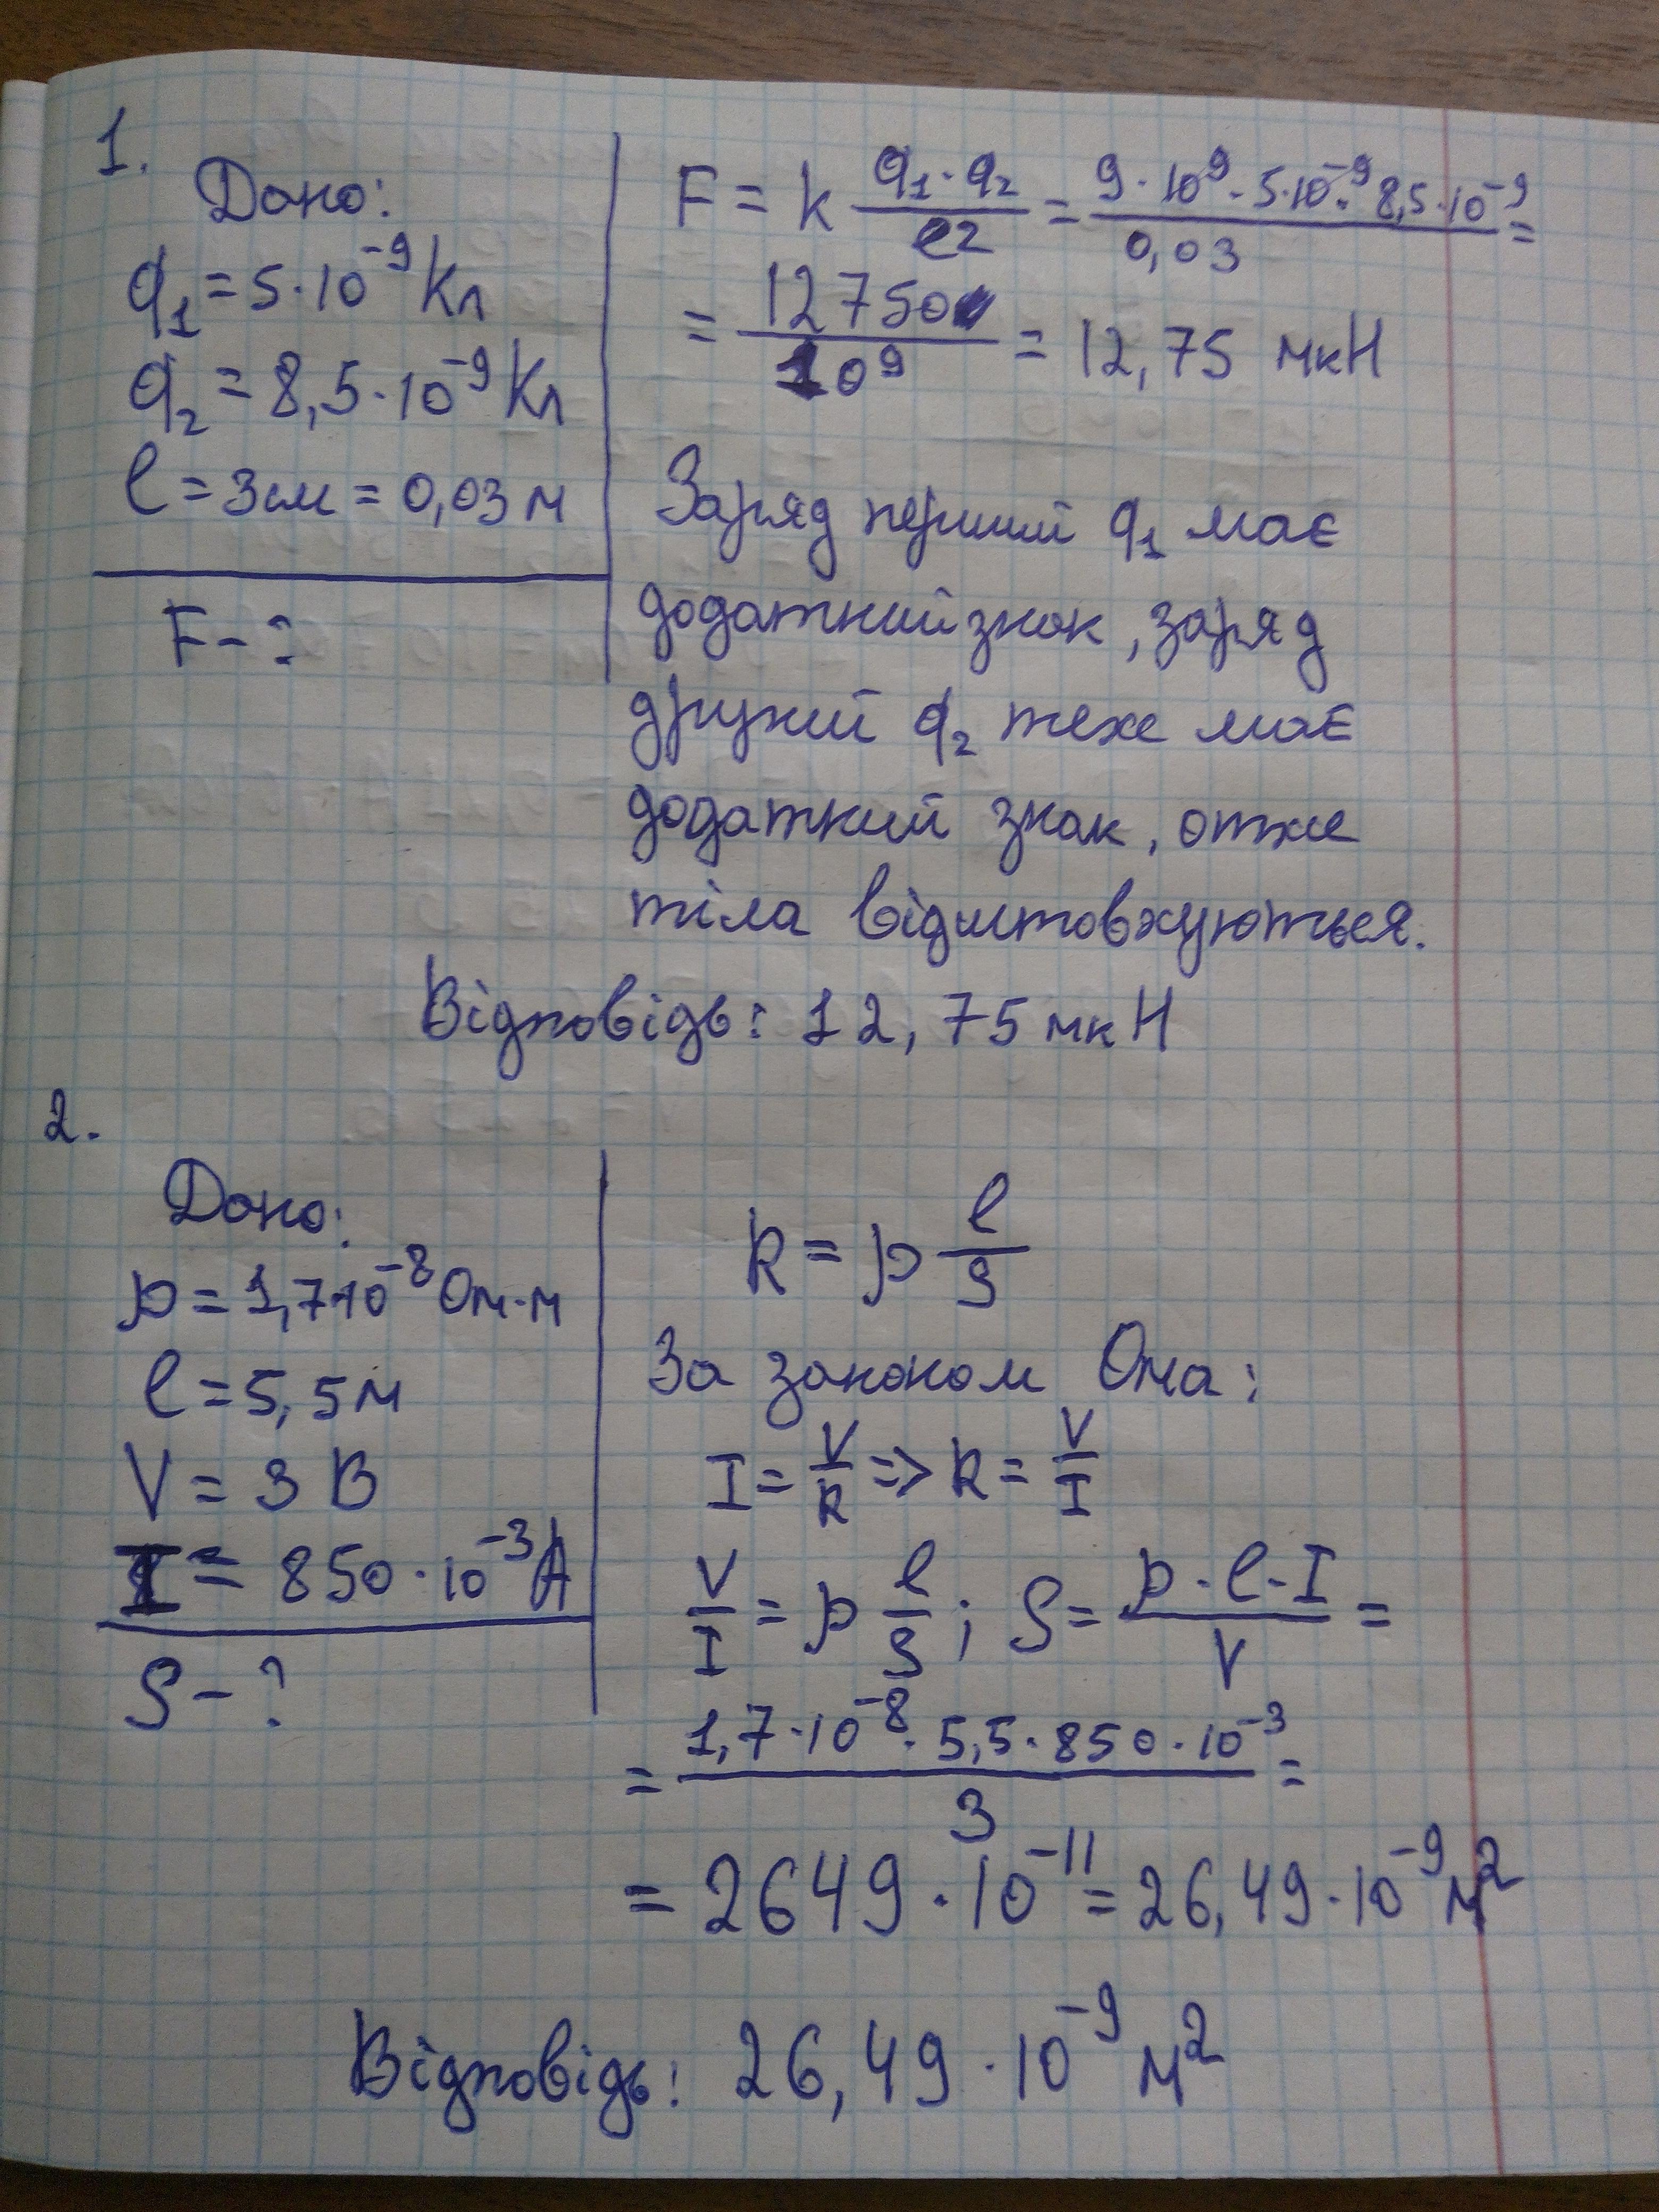 1.
Дано:
q₁ = 5·10⁻⁹ Кл
q₂ = 8,5·10⁻⁹ Кл
l = 3см = 0,03 м
F - ?
F = k (q₁·q₂)/l² = (9·10⁹·5·10⁻⁹·8,5·10⁻⁹)/0,03 =
= 12750/10⁹ = 12,75 мкН
Заряд перший q₁ має
додатний знак, заряд
другий q₂ теж має
додатний знак, отже
тіла відштовхуються.
Відповідь: 12,75 мкН
2.
Дано:
ρ = 1,7·10⁻⁸ Ом·м
l = 5,5 м
V = 3 В
I = 850·10⁻³ А
S - ?
R = ρ l/S
За законом Ома:
I = V/R => R = V/I
V/I = ρ l/S ; S = (ρ·l·I)/V =
= (1,7·10⁻⁸·5,5·850·10⁻³)/3 =
= 2649·10⁻¹¹ = 26,49·10⁻⁹ м²
Відповідь: 26,49·10⁻⁹ м²